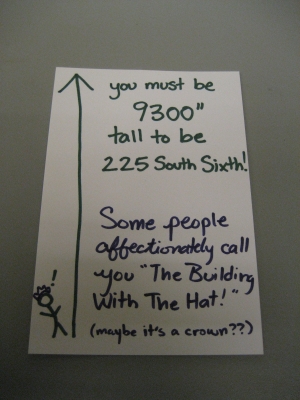 you must be
9300"
tall to be
225 South Sixth!
Some people
affectionately call
you "The Building
With The Hat!"
(maybe it's a crown??)
!